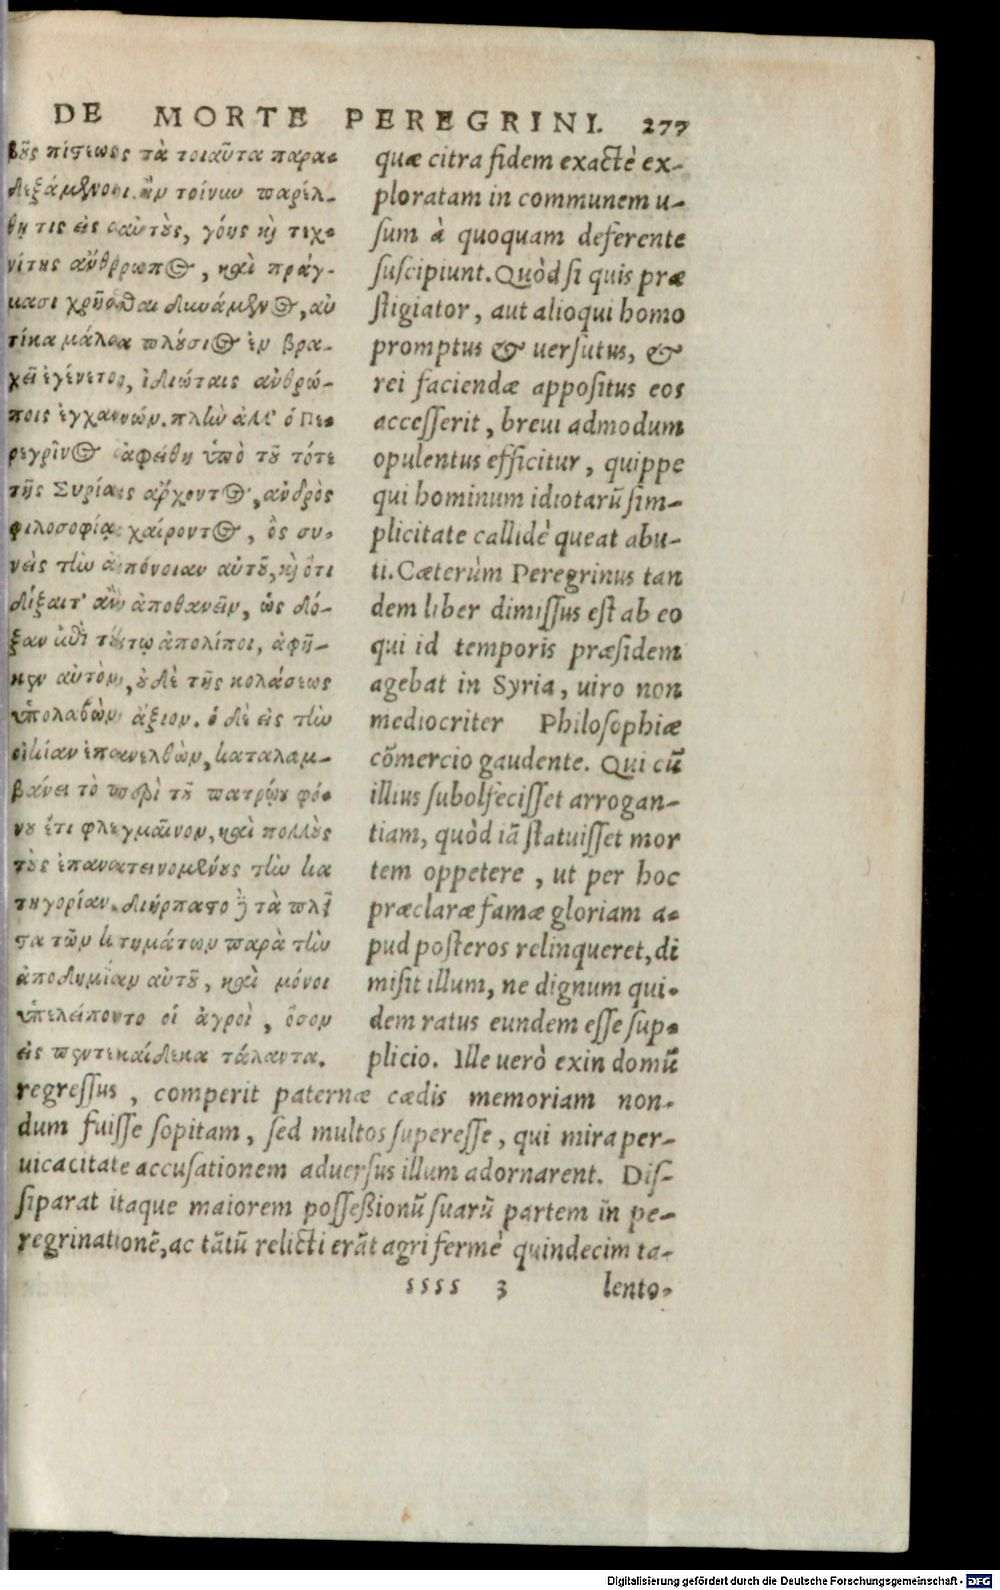 DE MORTE PEREGRINI. 277
βοῦς πίστεως τὰ τοιαῦτα παρα-
δεξάμενοι. ἢν τοίνυν παρέλ-
θῃ τις εἰς αὐτοὺς, γόης καὶ τεχ-
νίτης ἄνθρωπος, καὶ πράγ-
μασι χρῆσθαι δυνάμενος, αὐ
τίκα μάλα πλούσιος ἐν βρα-
χεῖ ἐγένετο, ἰδιώταις ἀνθρώ-
ποις ἐγχανών. πλὴν ἀλλ' ὁ Πε-
ρεγρῖνος ἀφείθη ὑπὸ τοῦ τότε
τῆς Συρίας ἄρχοντος, ἀνδρὸς
φιλοσοφίᾳ χαίροντος, ὃς συ-
νεὶς τὴν ἀπόνοιαν αὐτοῦ, καὶ ὅτι
δέξαιτ' ἂν ἀποθανεῖν, ὡς δό-
ξαν ἐπὶ τούτῳ ἀπολίποι, ἀφῆ-
κεν αὐτὸν, οὐδὲ τῆς κολάσεως
ὑπολαβὼν ἄξιον. ὁ δὲ εἰς τὴν
οἰκίαν ἐπανελθὼν, καταλαμ-
βάνει τὸ περὶ τοῦ πατρῴου φό-
νου ἔτι φλεγμαῖνον, καὶ πολλοὺς
τοὺς ἐπανατεινομένους τὴν κα
τηγορίαν. διήρπαστο δὲ τὰ πλεῖ
στα τῶν κτημάτων παρὰ τὴν
ἀποδημίαν αὐτοῦ, καὶ μόνοι
ὑπελείποντο οἱ ἀγροὶ, ὅσον
εἰς πεντεκαίδεκα τάλαντα.
quæ citra fidem exactè ex-
ploratam in communem u-
sum à quoquam deferente
suscipiunt. Quòd si quis præ
stigiator, aut alioqui homo
promptus & uersutus, &
rei faciendæ appositus eos
accesserit, breui admodum
opulentus efficitur, quippe
qui hominum idiotarū sim-
plicitate callidè queat abu-
ti. Cæterùm Peregrinus tan
dem liber dimissus est ab eo
qui id temporis præsidem
agebat in Syria, uiro non
mediocriter Philosophiæ
cōmercio gaudente. Qui cū
illius subolfecisset arrogan-
tiam, quòd iā statuisset mor
tem oppetere, ut per hoc
præclaræ famæ gloriam a-
pud posteros relinqueret, di
misit illum, ne dignum qui-
dem ratus eundem esse sup-
plicio. Ille uerò exin domū
regressus, comperit paternæ cædis memoriam non-
dum fuisse sopitam, sed multos superesse, qui mira per-
uicacitate accusationem aduersus illum adornarent. Dis-
siparat itaque maiorem possessionū suarū partem in pe-
regrinationē, ac tātū relicti erāt agri fermè quindecim ta-
ssss 3 lento-
Digitalisierung gefördert durch die Deutsche Forschungsgemeinschaft - DFG